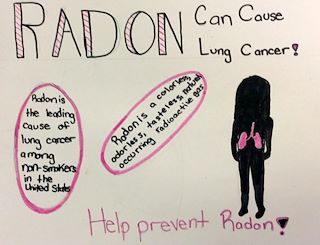 RADON Can Cause
Lung Cancer!
Radon is
the leading
cause of
lung cancer
among
non-smokers
in the
United States
Radon is a colorless,
odorless, tasteless, natural
occurring radioactive gas
Help prevent Radon!